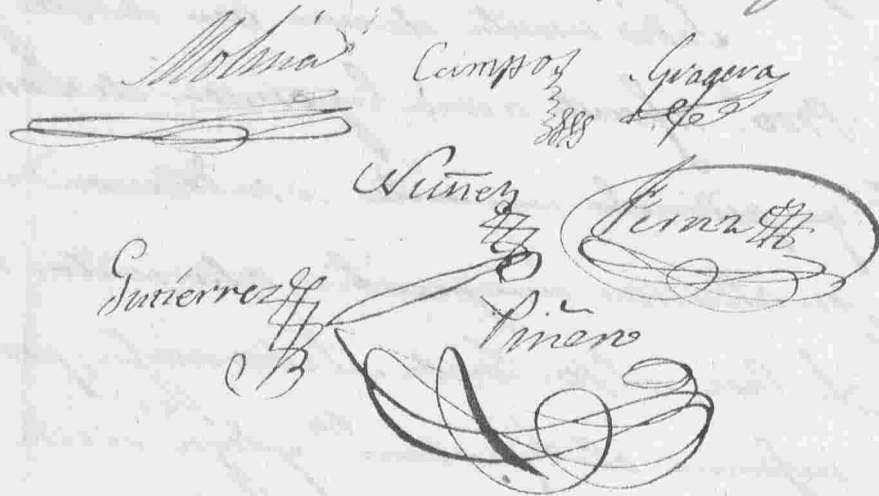 Molina Campos Gragera
Nuñez Fernz
Gutierrez Piñero